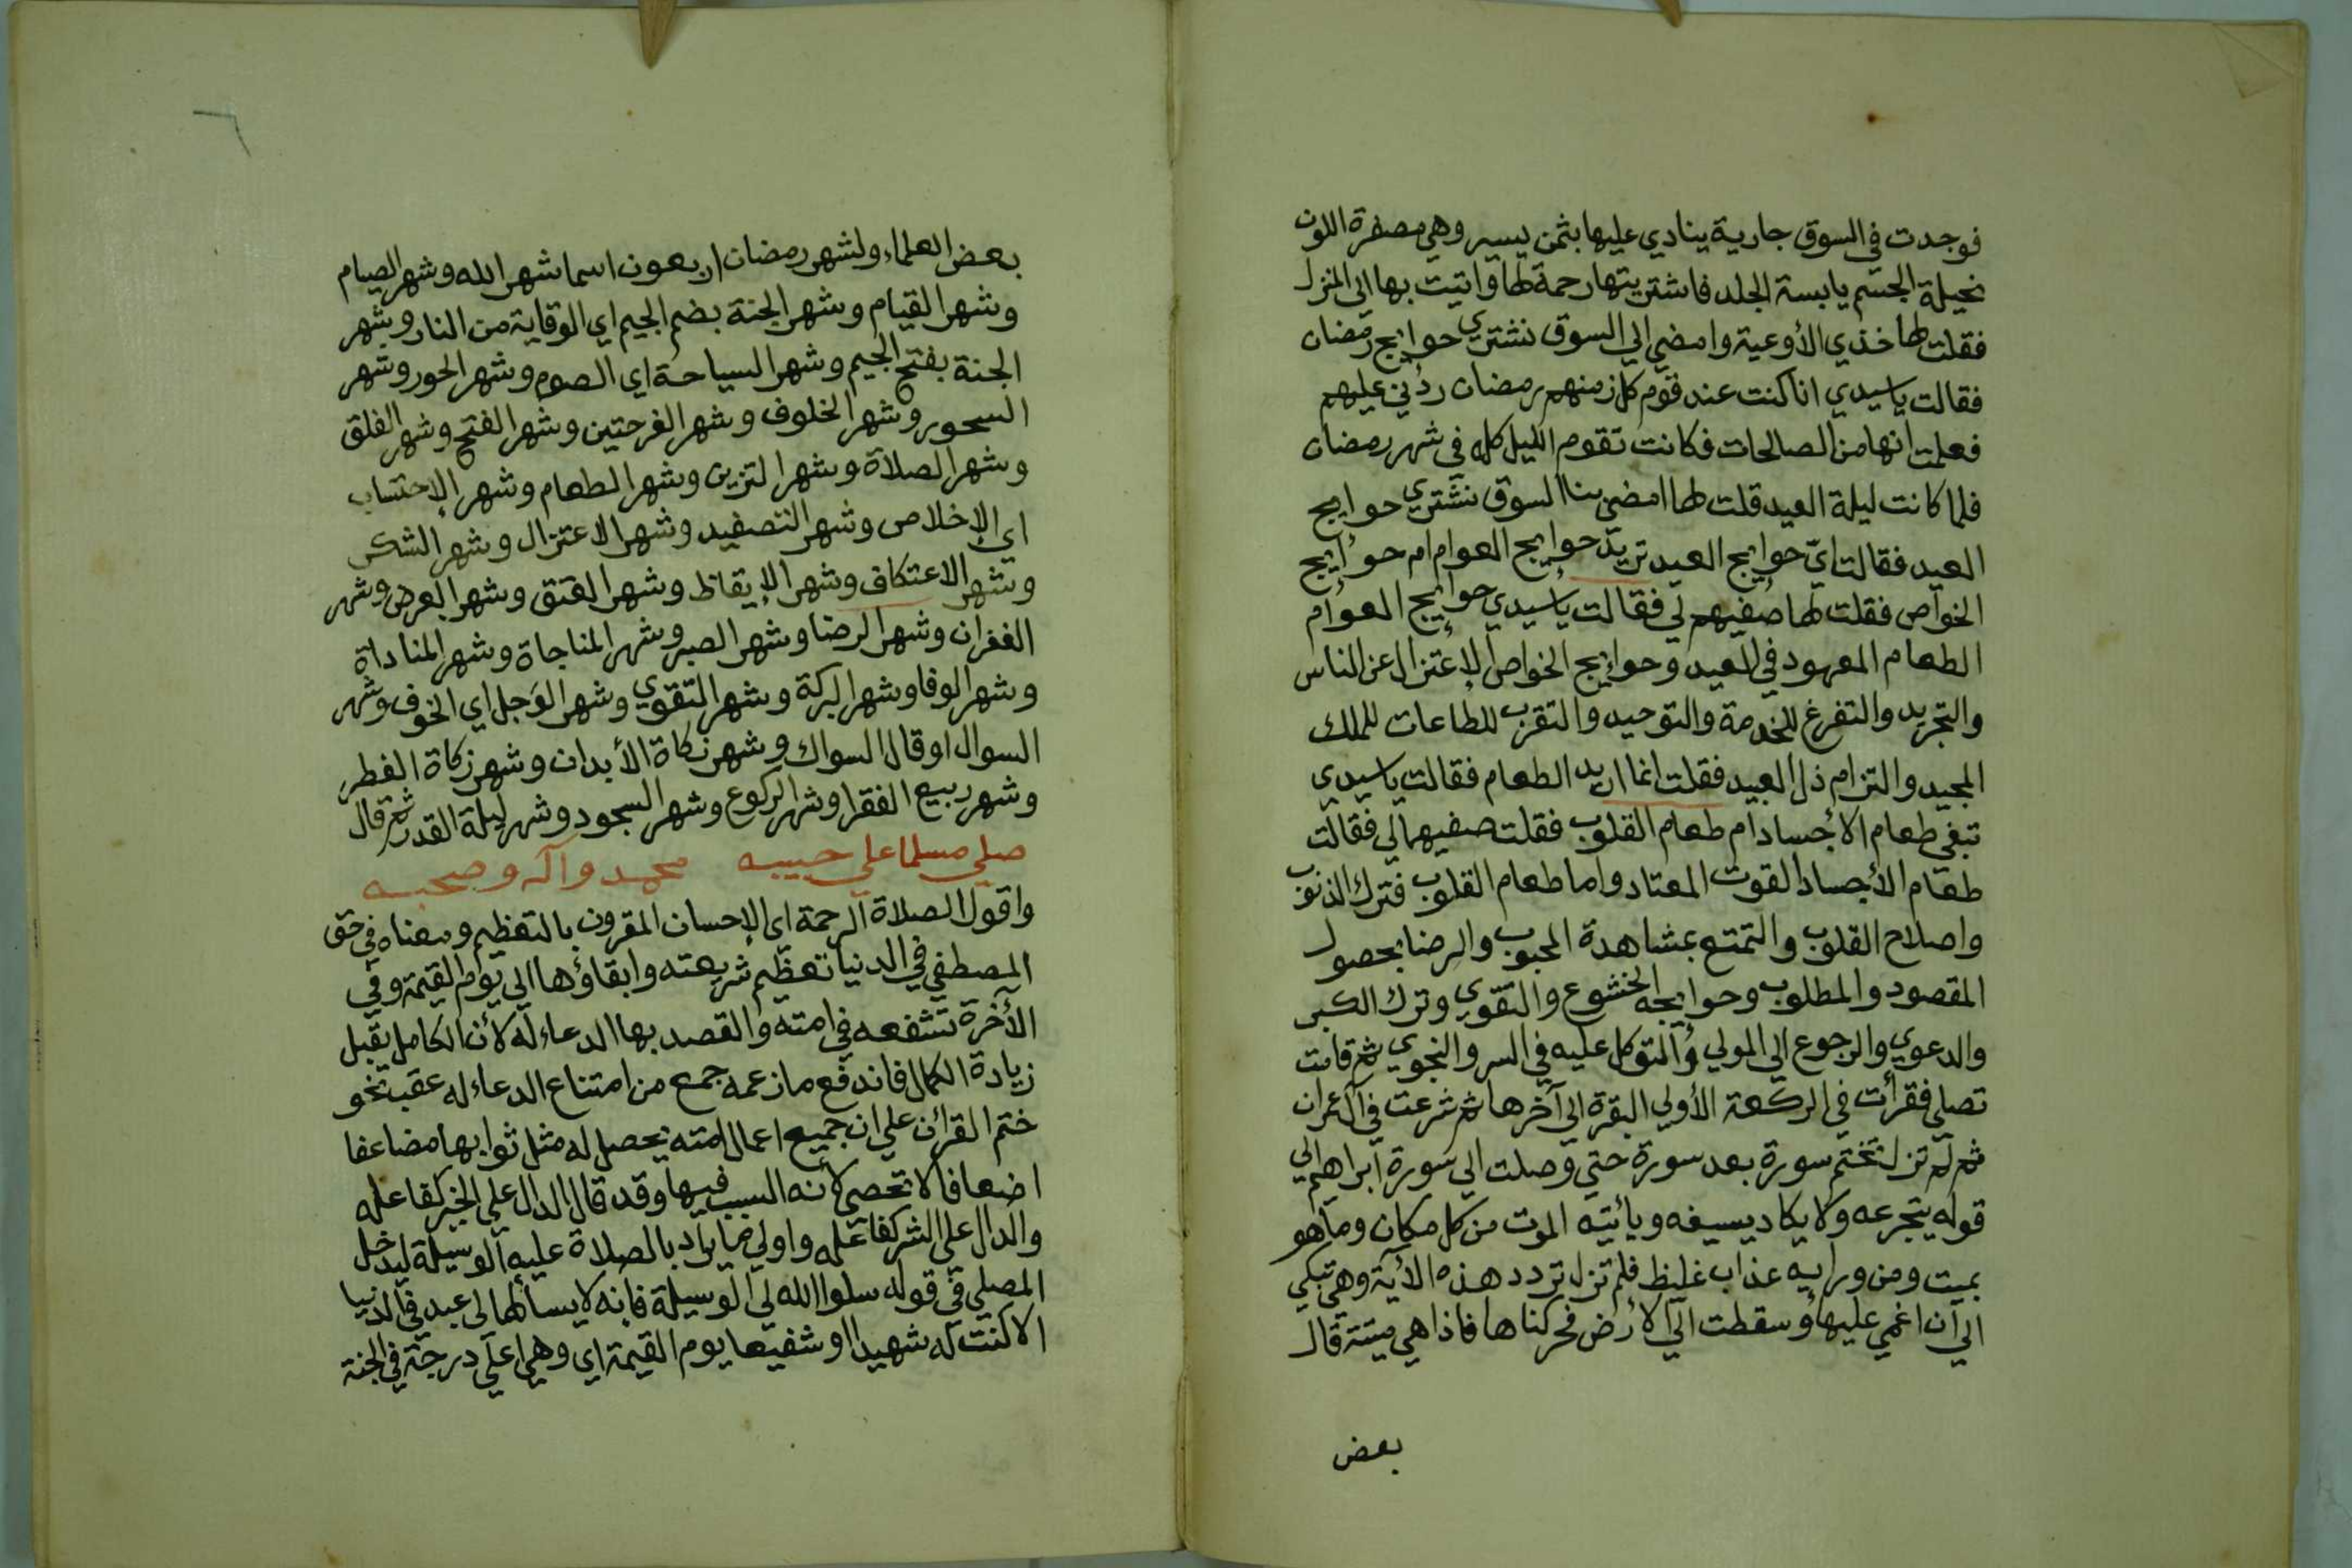 فوجدت في السوق جارية ينادي عليها بثمن يسير وهي مصفرة اللون
نحيلة الجسم يابسة الجلد فاشتريتها رحمة لها واتيت بها الي المنزل
فقلت لها خذي الأوعية وامضي الي السوق نشتري حوايج رمضان
فقالت ياسيدي انا كنت عند قوم كل زمنهم رمضان ردني عليهم
فعلمت انها من الصالحات فكانت تقوم الليل كله في شهر رمضان
فلما كانت ليلة العيد قلت لها امضي بنا السوق نشتري حوايج
العيد فقالت اي حوايج العيد تريد حوايج العوام ام حوايج
الخواص فقلت لها صفيهم لي فقالت ياسيدي حوايج العوام
الطعام المعهود في العيد وحوايج الخواص الإعتزال عن الناس
والتجريد والتفرغ للخدمة والتوحيد والتقرب للطاعات للملك
المجيد والتزام ذل العبيد فقلت انما اريد الطعام فقالت ياسيدي
تبغي طعام الأجساد ام طعام القلوب فقلت صفيهما لي فقالت
طعام الأجساد القوت المعتاد واما طعام القلوب فترك الذنوب
واصلاح القلوب والتمتع بمشاهدة المحبوب والرضا بحصول
المقصود والمطلوب وحوايجه الخشوع والتقوي وترك الكبر
والدعوي والرجوع الي المولي والتوكل عليه في السر والنجوي ثم قامت
تصلي فقرأت في الركعة الأولي البقرة الي آخرها ثم شرعت في آل عمران
ثم لم تزل تختم سورة بعد سورة حتي وصلت الي سورة ابراهيم الي
قوله يتجرعه ولا يكاد يسيغه ويأتيه الموت من كل مكان وما هو
بميت ومن ورايه عذاب غليظ فلم تزل تردد هذه الآية وهي تبكي
الي آن اغمي عليها وسقطت الي الأرض فحركناها فاذا هي ميتة قال
بعض
بعض العلماء ولشهر رمضان اربعون اسما شهر الله وشهر الصيام
وشهر القيام وشهر الجنة بضم الجيم اي الوقاية من النار وشهر
الجنة بفتح الجيم وشهر السياحة اي الصوم وشهر الحور وشهر
السحور وشهر الخلوف وشهر الفرحتين وشهر الفتح وشهر الفلق
وشهر الصلاة وشهر التزين وشهر الطعام وشهر الإحتساب
اي الإخلاص وشهر التصفيد وشهر الاعتزال وشهر الشكر
وشهر الاعتكاف وشهر الإيقاظ وشهر العتق وشهر العرض وشهر
الغفران وشهر الرضا وشهر الصبر وشهر المناجاة وشهر المناداة
وشهر الوفا وشهر البركة وشهر التقوي وشهر الوَجل اي الخوف وشهر
السوال او قال السواك وشهر زكاة الأبدان وشهر زكاة الفطر
وشهر ربيع الفقرا وشهر الركوع وشهر السجود وشهر ليلة القدر ثم قال
صلي مسلما علي حبيبه محمد وآله وصحبه
واقول الصلاة الرحمة اي الإحسان المقرون بالتعظيم ومعناه في حق
المصطفي في الدنيا تعظيم شريعته وابقاؤها الي يوم القيمة وفي
الآخرة تشفعه في امته والقصد بها الدعاء له لأن الكامل يقبل
زيادة الكمال فاندفع ما زعمه جمع من امتناع الدعاء له عقب نحو
ختم القرآن علي ان جميع اعمال امته يحصل له مثل ثوابها مضاعفا
اضعافا لا تحصي لأنه السبب فيها وقد قال الدال علي الخير كفاعله
والدال علي الشر كفاعله واولي ما يراد بالصلاة عليه الوسيلة ليدخل
المصلي في قوله سلوا الله لي الوسيلة فانه لا يسألها لي عبد في الدنيا
الا كنت له شهيدا او شفيعا يوم القيمة اي وهي اعلي درجة في الجنة